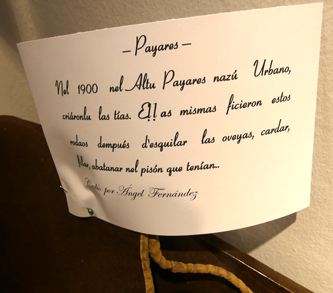 – Payares –
Nel 1900 nel Altu Payares nazú Urbano,
criáronlu las tías. El!! as mismas ficieron estos
rodaos dempués d'esquilar las oveyas, cardar,
filar, abatanar nel pisón que tenían..
por Ángel Fernández